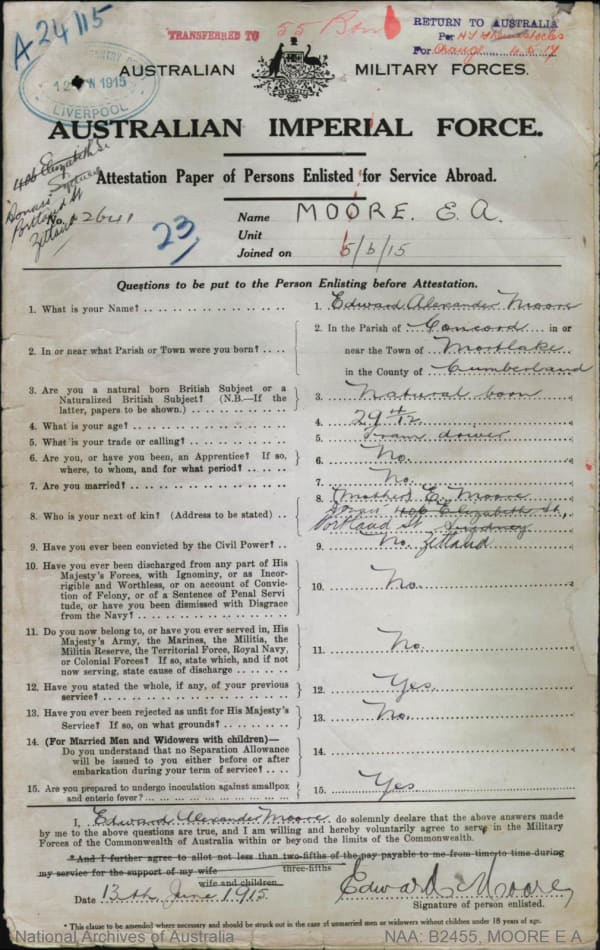 A 24115
TRANSFERRED TO 55 Batn
RETURN TO AUSTRALIA
Per
For Change
1915
LIVERPOOL
AUSTRALIAN MILITARY FORCES.
AUSTRALIAN IMPERIAL FORCE.
Attestation Paper of Persons Enlisted for Service Abroad.
406 Elizabeth St
Sydney
Portland St
Zetland
No. 2641
23
Name MOORE. E. A.
Unit
Joined on 5/6/15
Questions to be put to the Person Enlisting before Attestation.
1. What is your Name? 1. Edward Alexander Moore
2. In or near what Parish or Town were you born? 2. In the Parish of Concord in or
near the Town of Mortlake
in the County of Cumberland
3. Are you a natural born British Subject or a
Naturalized British Subject? (N.B.—If the
latter, papers to be shown.) 3. Natural born
4. What is your age? 4. 29
5. What is your trade or calling? 5. Tram
6. Are you, or have you been, an Apprentice? If so,
where, to whom, and for what period? 6. No.
7. Are you married? 7. No.
8. Who is your next of kin? (Address to be stated) 8. (Mother) E. Moore
406 Elizabeth St,
Portland St Sydney
Zetland
9. Have you ever been convicted by the Civil Power? 9. No.
10. Have you ever been discharged from any part of His
Majesty's Forces, with Ignominy, or as Incor-
rigible and Worthless, or on account of Convic-
tion of Felony, or of a Sentence of Penal Servi
tude, or have you been dismissed with Disgrace
from the Navy? 10. No.
11. Do you now belong to, or have you ever served in, His
Majesty's Army, the Marines, the Militia, the
Militia Reserve, the Territorial Force, Royal Navy,
or Colonial Forces? If so, state which, and if not
now serving, state cause of discharge 11. No.
12. Have you stated the whole, if any, of your previous
service? 12. Yes
13. Have you ever been rejected as unfit for His Majesty's
Service? If so, on what grounds? 13. No.
14. (For Married Men and Widowers with children)—
Do you understand that no Separation Allowance
will be issued to you either before or after
embarkation during your term of service? 14.
15. Are you prepared to undergo inoculation against smallpox
and enteric fever? 15. Yes
I, Edward Alexander Moore do solemnly declare that the above answers made
by me to the above questions are true, and I am willing and hereby voluntarily agree to serve in the Military
Forces of the Commonwealth of Australia within or beyond the limits of the Commonwealth.
*And I further agree to allot not less than two-fifths of the pay payable to me from time to time during
three-fifths
my service for the support of my wife
wife and children.
Date 13th June 1915. Edward A Moore
Signature of person enlisted.
* This clause to be amended where necessary and should be struck out in the case of unmarried men or widowers without children under 18 years of age.
National Archives of Australia NAA: B2455, MOORE E A